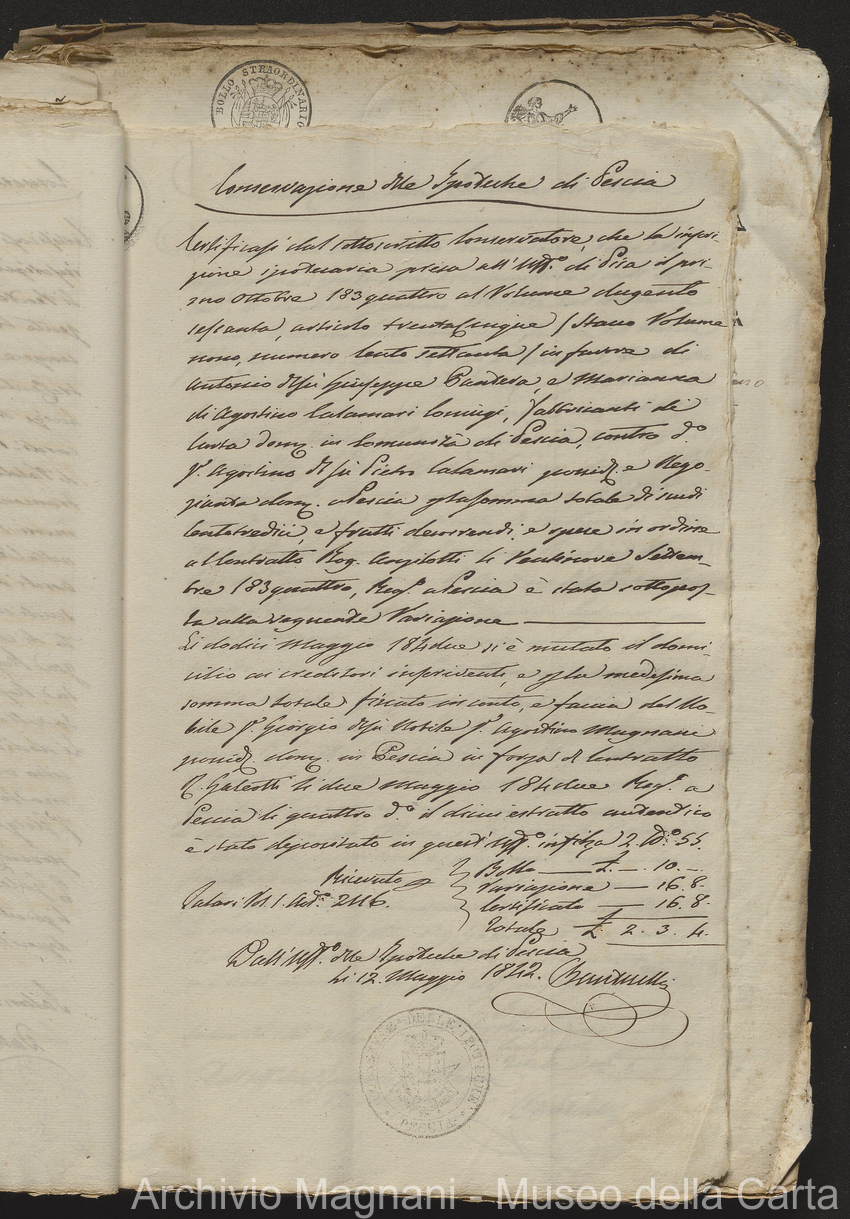 BOLLO STRAORDINARIO
Conservazione delle Ipoteche di Pescia
Certificasi dal sottoscritto Conservatore, che la inscri-
zione ipotecaria presa all'Uff.o di Pisa il pri-
mo Ottobre 183quattro al Volume dugento
sessanta, articolo trentacinque (Stato Volume
nono, numero Cento settanta) in favore di
Antonio del fù Giuseppe Pantera e Marianna
di Agostino Calamari Coniugi, fabbricanti di
Carta dom. in Comunità di Pescia, contro d.o
S.r Agostino del fù Pietro Calamari possid. e Nego-
ziante dom. a Pescia p la somma totale di scudi
centotredici, e frutti decorrendi, e spese in ordine
al Contratto Rog. Angilotti li Ventinove Settem-
bre 183quattro, Reg.o a Pescia è stata sottopos-
ta alla seguente Variazione
Li dodici Maggio 184due si è mutato il domi-
cilio ai creditori inscriventi, e p la medesima
somma totale fissato in conto, e faccia del No-
bile S.r Giorgio del fù Nobile S.r Agostino Magnani
possid. dom. in Pescia in forza di Contratto
R. Galeotti li due Maggio 184due Reg.o a
Pescia li quattro d.o il di cui estratto autentico
è stato depositato in quest'Uff.o in filza 2 N.o 55.
Ricevuto Bollo — £ — . 10 . —
Variazione — 16. 8.
Salari Vol 1. Art.o 2116. Certificato — 16. 8.
Totale £ 2. 3. 4.
Dall'Uff.o delle Ipoteche di Pescia
Li 12. Maggio 1842.
DELLE IPOTECHE
PESCIA
Archivio Magnani - Museo della Carta